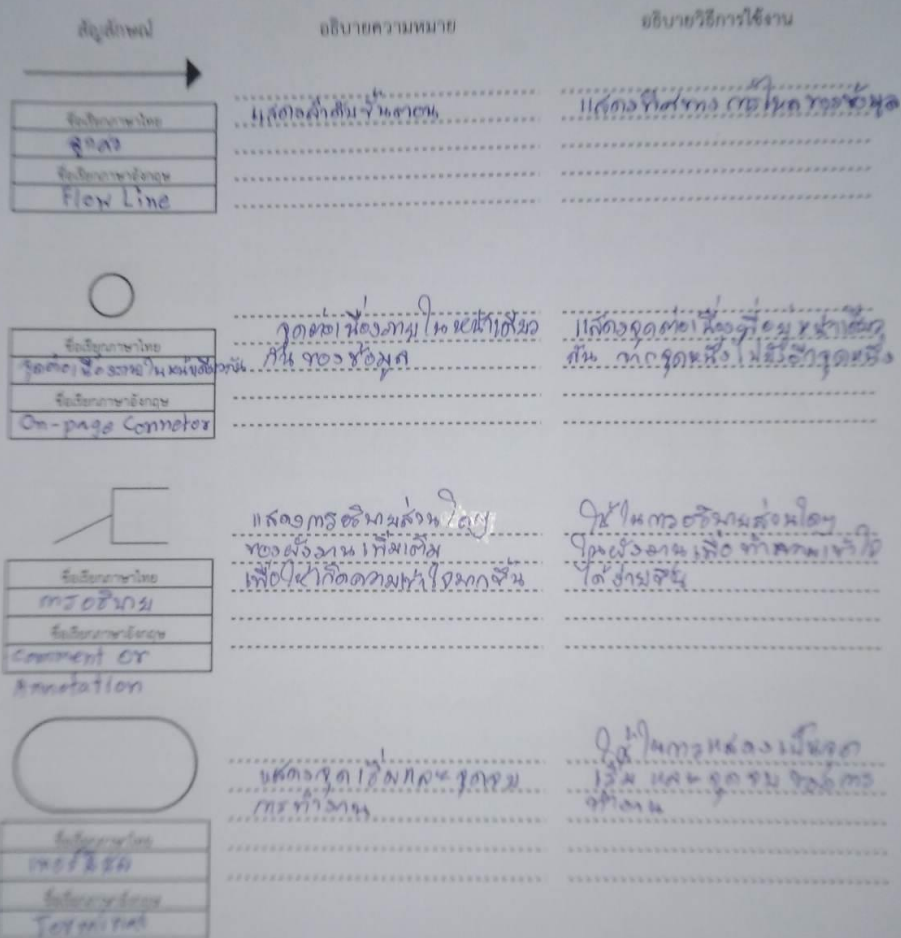 สัญลักษณ์
อธิบายความหมาย
อธิบายวิธีการใช้งาน
ชื่อเรียกภาษาไทย
ลูกศร
ชื่อเรียกภาษาอังกฤษ
Flow Line
แสดงลำดับขั้นตอน
แสดงทิศทาง การไหล ของข้อมูล
ชื่อเรียกภาษาไทย
จุดต่อเนื่องภายในหน้าเดียวกัน
ชื่อเรียกภาษาอังกฤษ
On-page Connetor
จุดต่อเนื่องภายในหน้าเดียว
กัน ของข้อมูล
แสดงจุดต่อเนื่องที่อยู่หน้าเดียว
กัน จากจุดหนึ่งไปยังอีกจุดหนึ่ง
ชื่อเรียกภาษาไทย
การอธิบาย
ชื่อเรียกภาษาอังกฤษ
Comment or
Annotation
แสดงการอธิบายส่วนใดๆ
ของผังงานเพิ่มเติม
เพื่อให้เกิดความเข้าใจมากขึ้น
ใช้ในการอธิบายส่วนใดๆ
ในผังงานเพื่อทำความเข้าใจ
ได้ง่ายขึ้น
ชื่อเรียกภาษาไทย
ชื่อเรียกภาษาอังกฤษ
Terminal
แสดงจุดเริ่มและจุดจบ
การทำงาน
ใช้ในการแสดงเป็นจุด
เริ่ม และ จุดจบ ของการ
ทำงาน